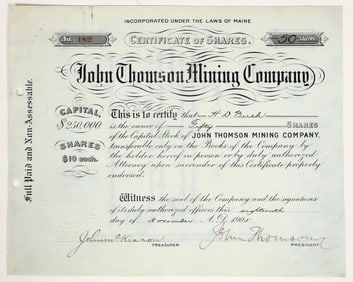 INCORPORATED UNDER THE LAWS OF MAINE.
No. 182
CERTIFICATE OF SHARES.
50 Shares
John Thomson Mining Company
Full Paid and Non-Assessable.
CAPITAL,
$250,000
SHARES
$10 each.
This is to certify that H D Bush
is the owner of Fifty SHARES
of the Capital Stock of JOHN THOMSON MINING COMPANY,
transferable only on the Books of the Company by
the holder hereof in person or by duly authorized
Attorney upon surrender of this Certificate properly
endorsed.
Witness the seal of the Company and the signatures
of its duly authorized officers this eighteenth
day of November A.D. 1905
John McKinnon
TREASURER
John Thomson
PRESIDENT